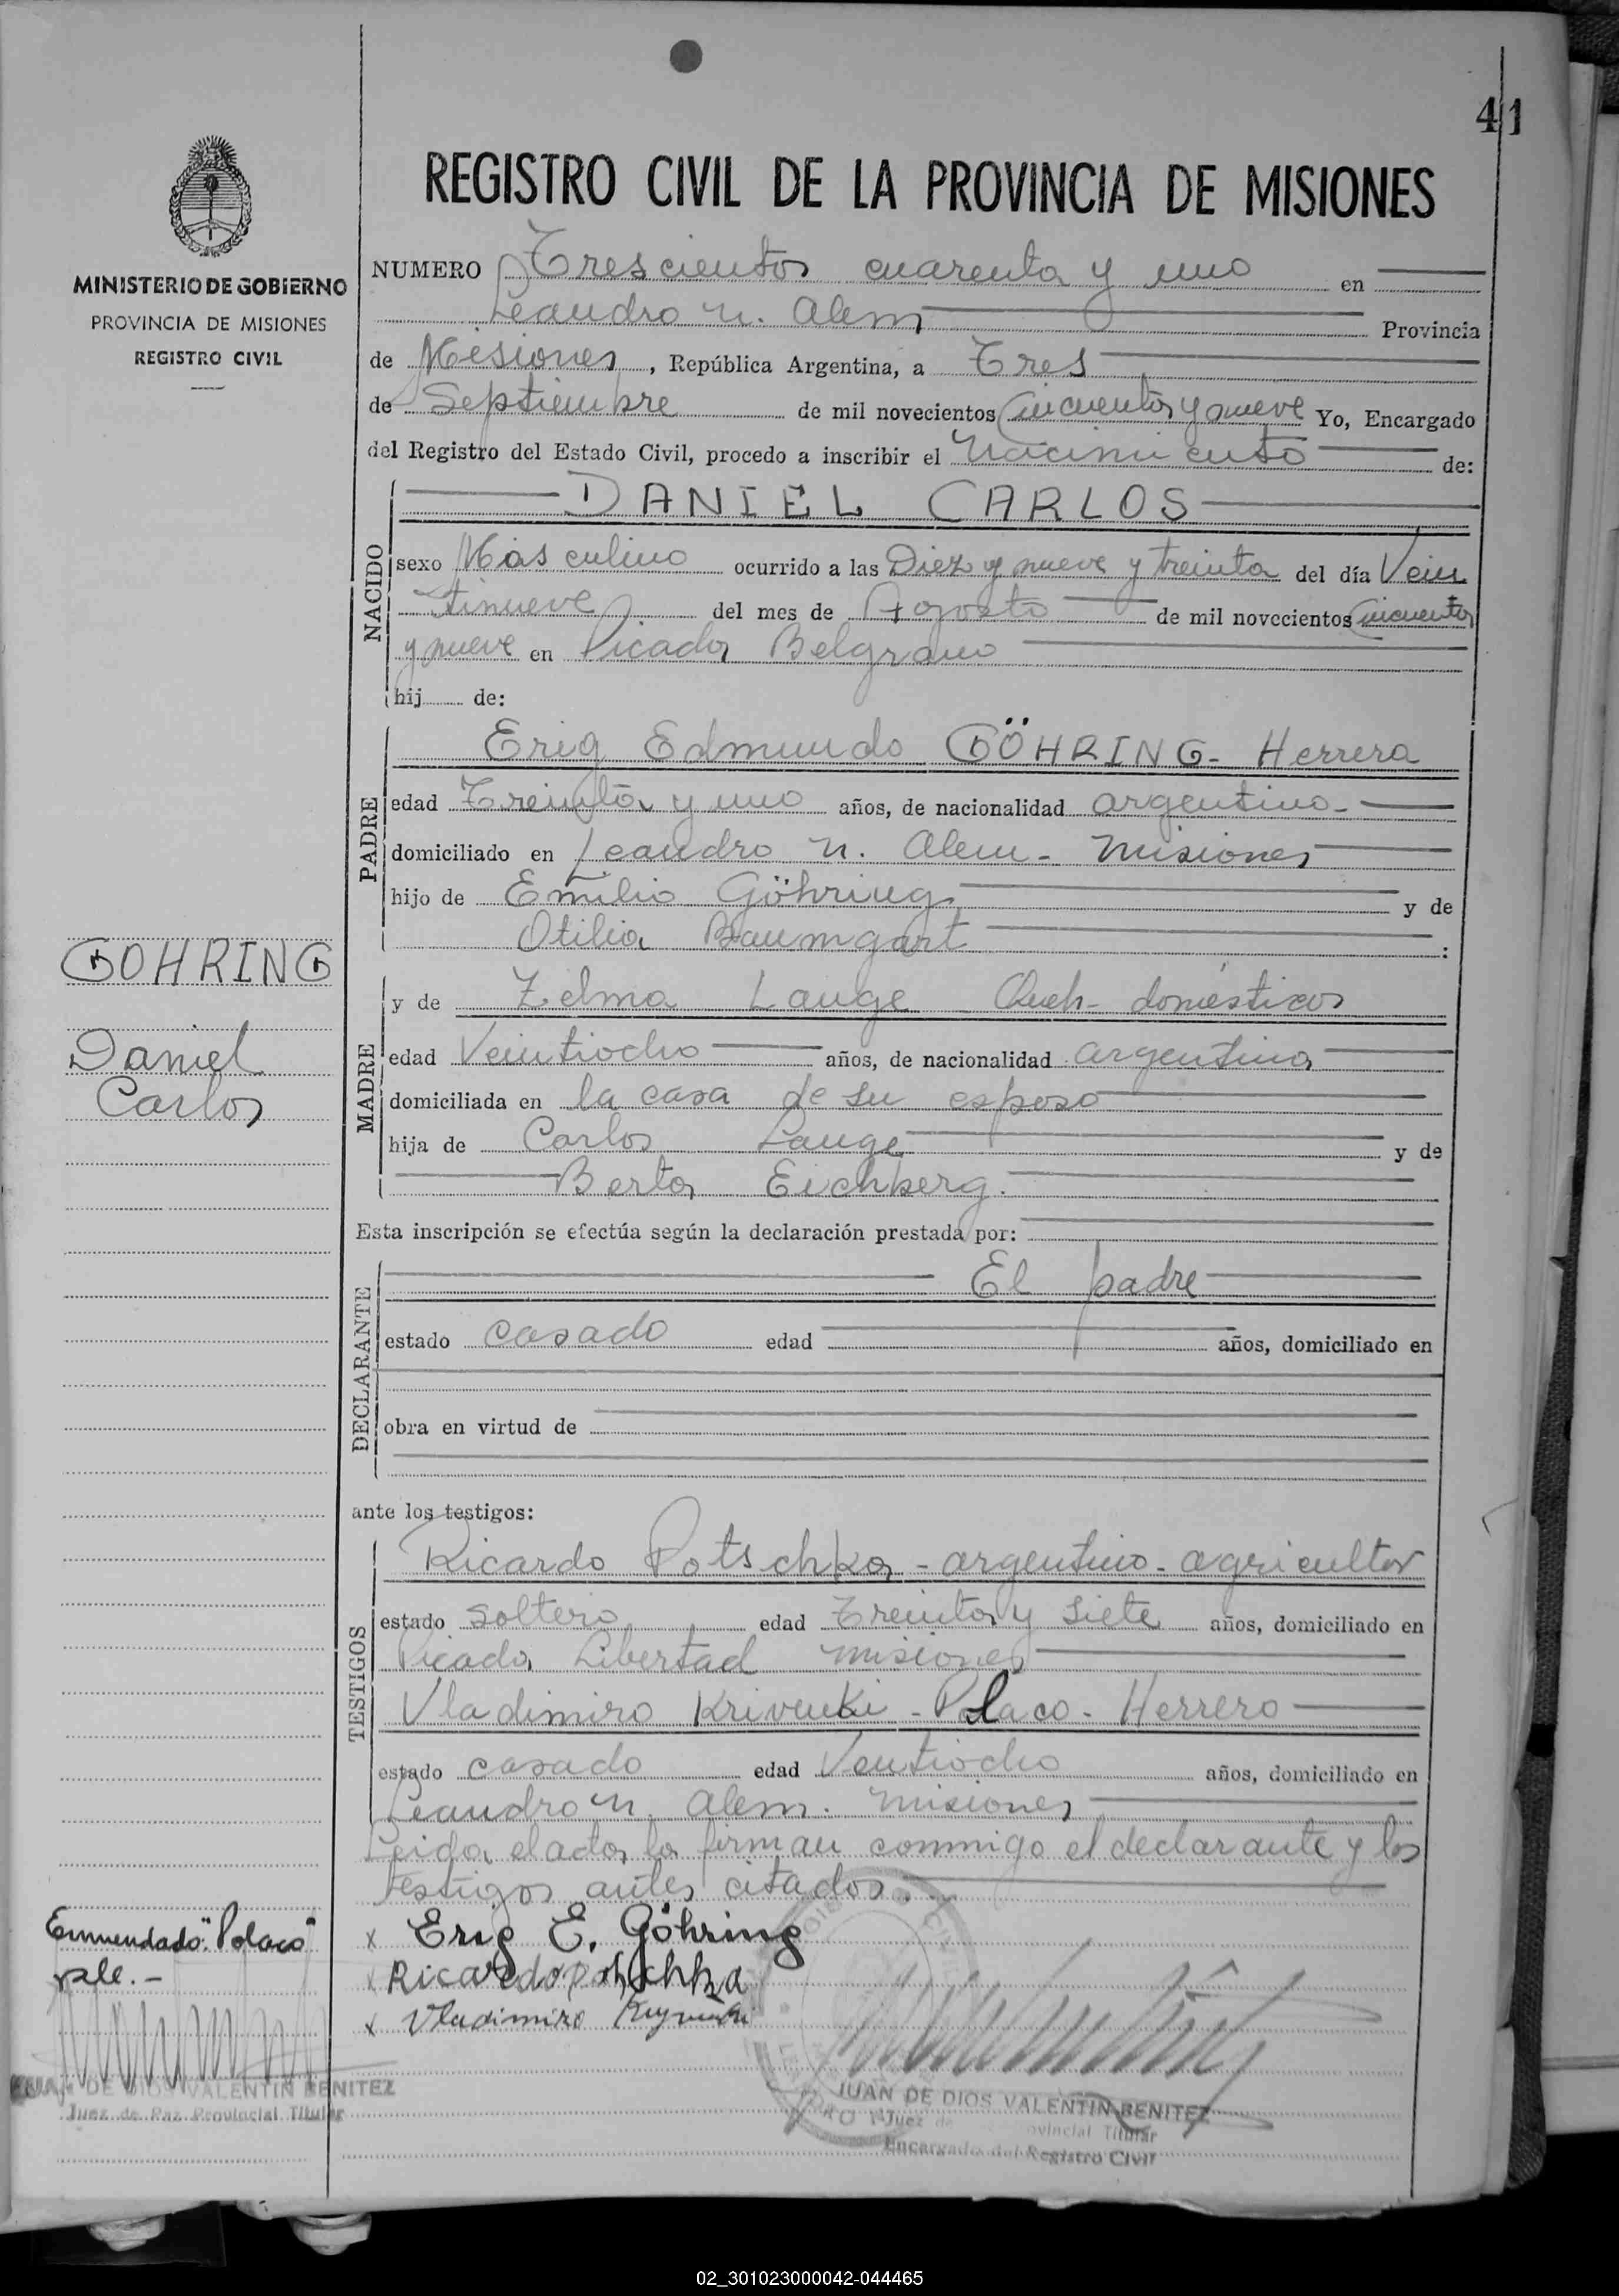 41
REGISTRO CIVIL DE LA PROVINCIA DE MISIONES
MINISTERIO DE GOBIERNO
PROVINCIA DE MISIONES
REGISTRO CIVIL
NUMERO Trescientos cuarenta y uno en
Leandro N. Alem Provincia
de Misiones, República Argentina, a Tres
de Septiembre de mil novecientos Cincuenta y nueve Yo, Encargado
del Registro del Estado Civil, procedo a inscribir el Nacimiento de:
DANIEL CARLOS
NACIDO
sexo Masculino ocurrido a las Diez y nueve y treinta del día Vein
tinueve del mes de Agosto de mil novecientos Cincuenta
y nueve en Picada Belgrano
hij de:
Erig Edmundo GÖHRING- Herrera
PADRE
edad Treinta y uno años, de nacionalidad argentino-
domiciliado en Leandro N. Alem- Misiones
hijo de Emilio Göhring y de
Otilia Baumgart :
GOHRING
Daniel
Carlos
y de Zelma Lange Queh- domésticos
MADRE
edad Veintiocho años, de nacionalidad argentina
domiciliada en la casa de su esposo
hija de Carlos Lange y de
Berta Eichberg.
Esta inscripción se efectúa según la declaración prestada por:
El padre
DECLARANTE
estado casado edad años, domiciliado en
obra en virtud de
ante los testigos:
Ricardo Potschka - argentino - agricultor
TESTIGOS
estado soltero edad Treinta y siete años, domiciliado en
Picada Libertad Misiones
Vladimiro Krivenki - Polaco - Herrero
estado casado edad Ventiocho años, domiciliado en
Leandro N. Alem. Misiones
Leida el acta, la firman conmigo el declarante y los
testigos antes citados.
Enmendado: "Polaco"
vale.-
x Erig E. Göhring
x Ricardo Potschka
x Vladimiro
JUAN DE DIOS VALENTIN BENITEZ
Juez de Paz Provincial Titular
JUAN DE DIOS VALENTIN BENITEZ
Juez de ovincial Titular
Encargado del Registro Civil
02_301023000042-044465